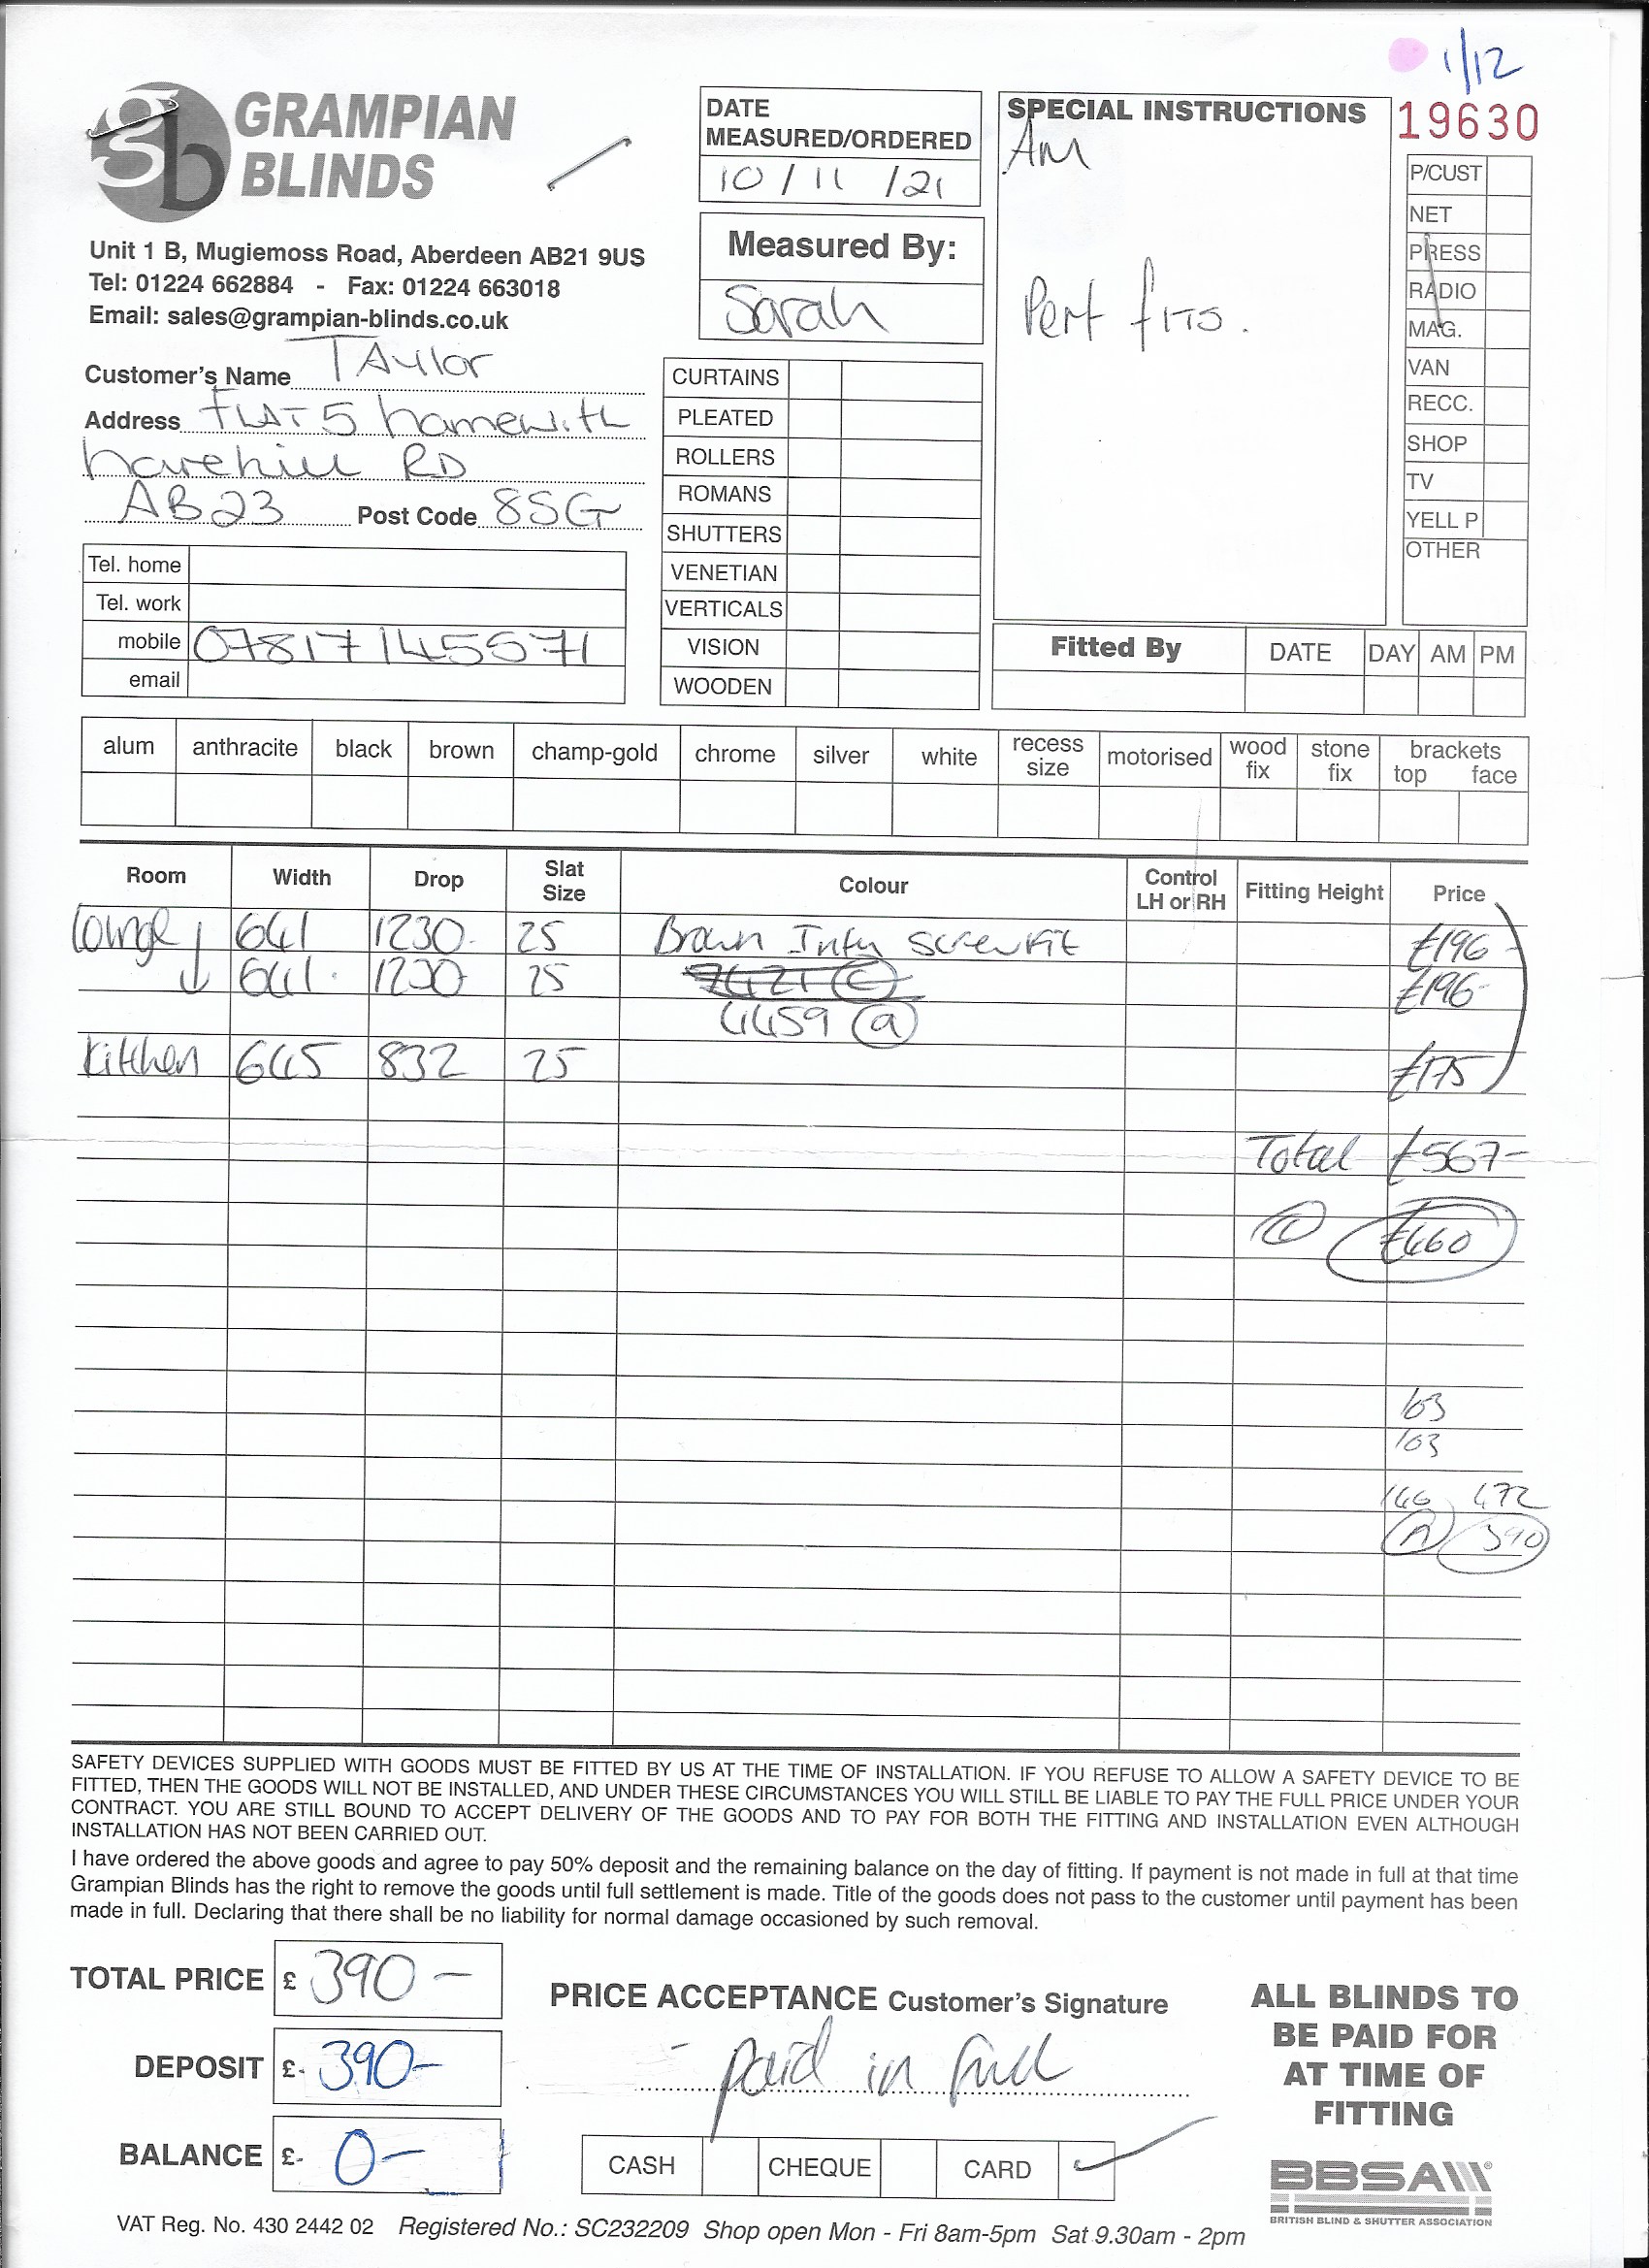 1/12
GRAMPIAN
BLINDS
Unit 1 B, Mugiemoss Road, Aberdeen AB21 9US
Tel: 01224 662884 - Fax: 01224 663018
Email: sales@grampian-blinds.co.uk
DATE
MEASURED/ORDERED
10/11/21
Measured By:
Sarah
SPECIAL INSTRUCTIONS
AM
Perf fits.
19630
P/CUST
NET
PRESS
RADIO
MAG.
VAN
RECC.
SHOP
TV
YELL P
OTHER
Customer's Name TAylor
Address FLAT 5 hamewith
harehill RD
AB23 Post Code 8SG
Tel. home
Tel. work
mobile 07817145571
email
CURTAINS
PLEATED
ROLLERS
ROMANS
SHUTTERS
VENETIAN
VERTICALS
VISION
WOODEN
Fitted By DATE DAY AM PM
alum anthracite black brown champ-gold chrome silver white recess size motorised wood fix stone fix brackets top face
Room Width Drop Slat Size Colour Control LH or RH Fitting Height Price
Lounge 641 1230 25 Brown Inty Screwfit £196-
641 1230 25 7421 (C) £196-
4459 (a)
Kitchen 645 832 25 £175
Total £567-
(C) £460
163
163
146 472
(A) 390
SAFETY DEVICES SUPPLIED WITH GOODS MUST BE FITTED BY US AT THE TIME OF INSTALLATION. IF YOU REFUSE TO ALLOW A SAFETY DEVICE TO BE
FITTED, THEN THE GOODS WILL NOT BE INSTALLED, AND UNDER THESE CIRCUMSTANCES YOU WILL STILL BE LIABLE TO PAY THE FULL PRICE UNDER YOUR
CONTRACT. YOU ARE STILL BOUND TO ACCEPT DELIVERY OF THE GOODS AND TO PAY FOR BOTH THE FITTING AND INSTALLATION EVEN ALTHOUGH
INSTALLATION HAS NOT BEEN CARRIED OUT.
I have ordered the above goods and agree to pay 50% deposit and the remaining balance on the day of fitting. If payment is not made in full at that time
Grampian Blinds has the right to remove the goods until full settlement is made. Title of the goods does not pass to the customer until payment has been
made in full. Declaring that there shall be no liability for normal damage occasioned by such removal.
TOTAL PRICE £ 390-
DEPOSIT £ 390-
BALANCE £ 0-
PRICE ACCEPTANCE Customer's Signature
- paid in full
CASH CHEQUE CARD ✓
ALL BLINDS TO
BE PAID FOR
AT TIME OF
FITTING
BBSA
BRITISH BLIND & SHUTTER ASSOCIATION
VAT Reg. No. 430 2442 02 Registered No.: SC232209 Shop open Mon - Fri 8am-5pm Sat 9.30am - 2pm